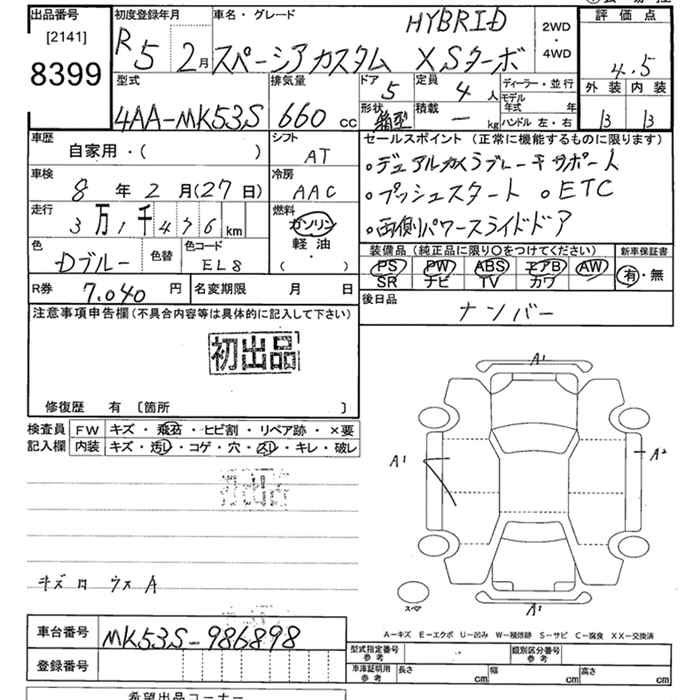 出品番号 初度登録年月 車名・グレード HYBRID 2WD 評価点
[2141] R5 2月 スペーシアカスタム XSターボ ・
8399 4WD 4.5
型式 排気量 ドア 5 定員 4 人 ディーラー・並行 外装 内装
モデル年式 年
4AA-MK53S 660 cc 形状 箱型 積載 ー kg ハンドル 左・右 B B
車歴 シフト セールスポイント(正常に機能するものに限ります)
自家用・( ) AT 。デュアルカメラブレーキサポート
車検 冷房 。プッシュスタート 。ETC
8年 2月(27日) AAC
走行 燃料 。両側パワースライドドア
3万1千476km ガソリン
軽油
・
( )
色 色替 色コード 装備品(純正品に限り○をつけてください) 新車保証書
Dブルー EL8 PS PW ABS エアB AW 有・無
SR ナビ TV カワ
R券 7.040円 名変期限 月 日 後日品 ナンバー
注意事項申告欄(不具合内容等は具体的に記入して下さい)
初出品
修復歴 有 〔箇所 〕
検査員 FW キズ・飛石・ヒビ割・リペア跡・×要
記入欄 内装 キズ・汚レ・コゲ・穴・スレ・キレ・破レ
A1
A1 A2
初出品
キズ ウスA
スペア A1
A-キズ E-エクボ U-凹み W-補修跡 S-サビ C-腐食 XX-交換済
車台番号 MK53S-986898 型式指定番号 参考 類別区分番号 参考
登録番号 車庫証明用 参考 長さ cm 幅 cm 高さ cm
希望出品コーナー